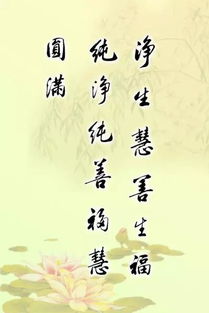 净生慧善生福
纯净纯善福慧
圆满